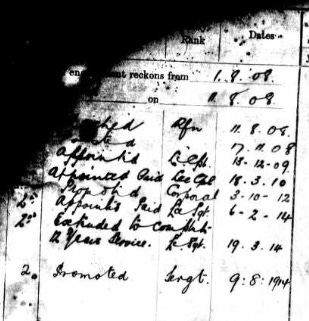 Rank Dates
reckons from 1.8.08
on 11.8.08
Rfn 11.8.08
17.11.08
Appointed 18-12-09
Appointed Paid 18.3.10
Promoted Corporal 3-10-12
Appointed Paid Lce Sgt. 6-2-14
Extended to Complete
12 Years Service. Lce Sgt. 19.3.14
2. Promoted Sergt. 9:8:1914